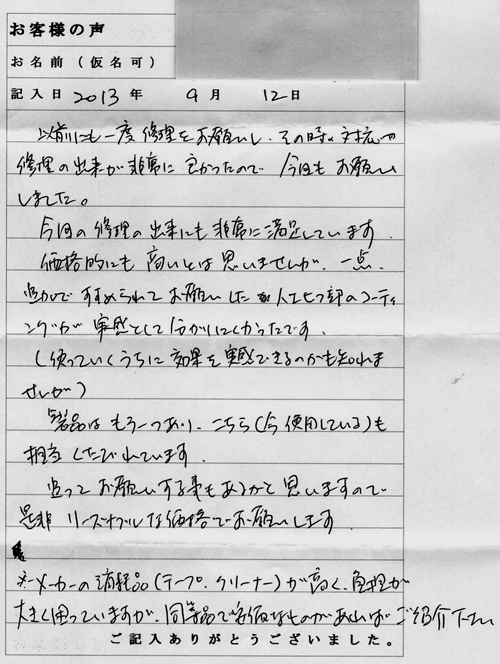 お客様の声
お名前（仮名可）
記入日 2013年 9月 12日
以前にも一度修理をお願いし、その時の対応や
修理の出来が非常に良かったので今回もお願い
しました。
今回の修理の出来にも非常に満足しています。
価格的にも高いとは思いませんが、一点、
追加ですすめられてお願いした 部のコーティ
ングが実感として分かりにくかったです。
（使っていくうちに効果を実感できるのかも知れま
せんが）
製品はもう一つあり、こちら（今使用している）も
相当くたびれています。
追ってお願いする事もあるかと思いますので
是非リーズナブルな価格でお願いします。
※メーカーの消耗品（テープ、クリーナー）が高く、負担が
大きく困っていますが、同等品で安価なものがあればご紹介下さい
ご記入ありがとうございました。